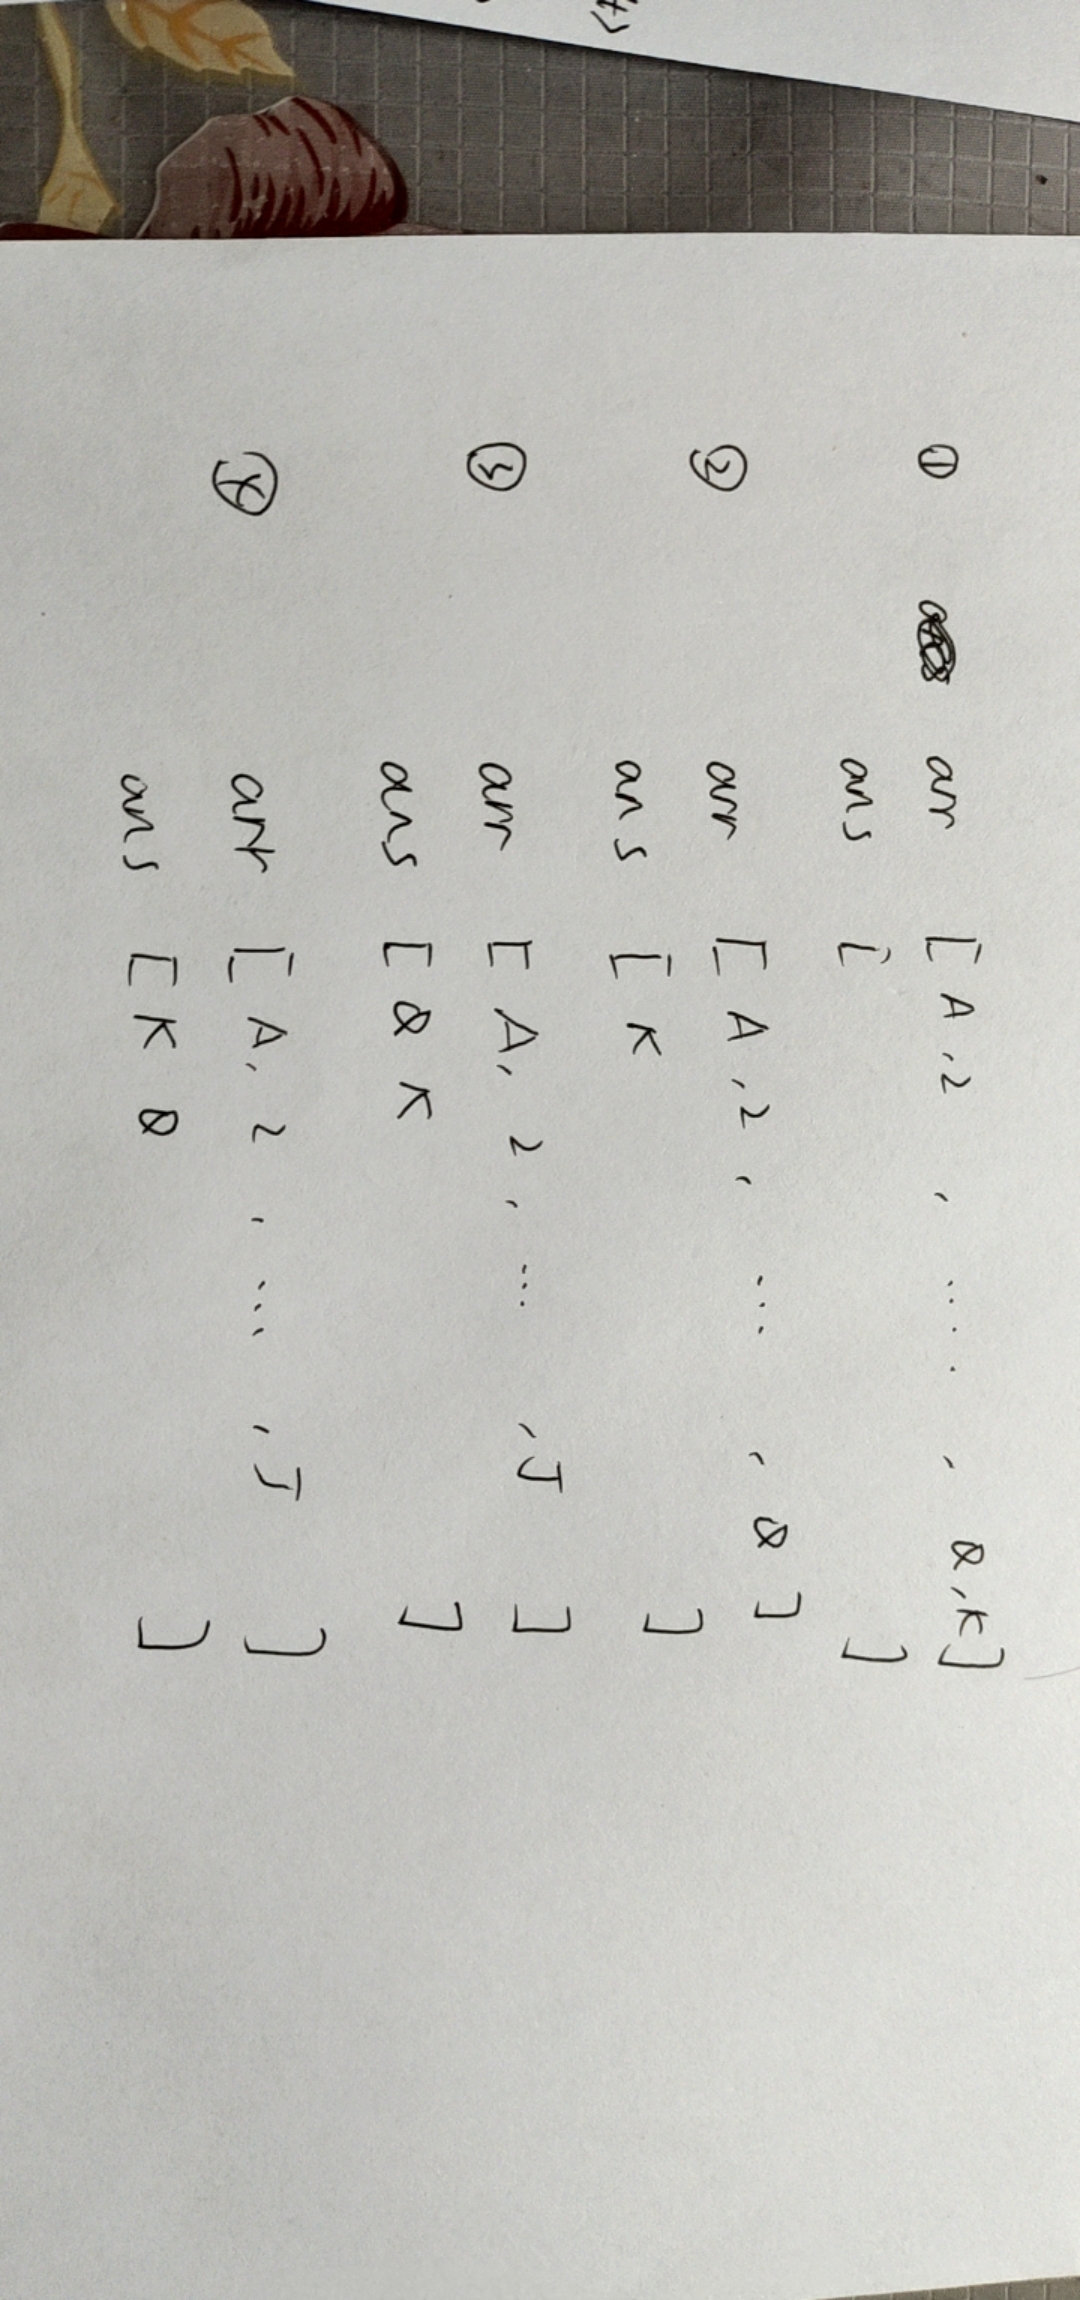 ① arr [ A , 2 , .... , Q , K ]
ans [ ]
② arr [ A , 2 , ... , Q ]
ans [ K ]
t>
③ arr [ A , 2 , ... , J ]
ans [ Q K ]
④ arr [ A , 2 , ... , J ]
ans [ K Q ]